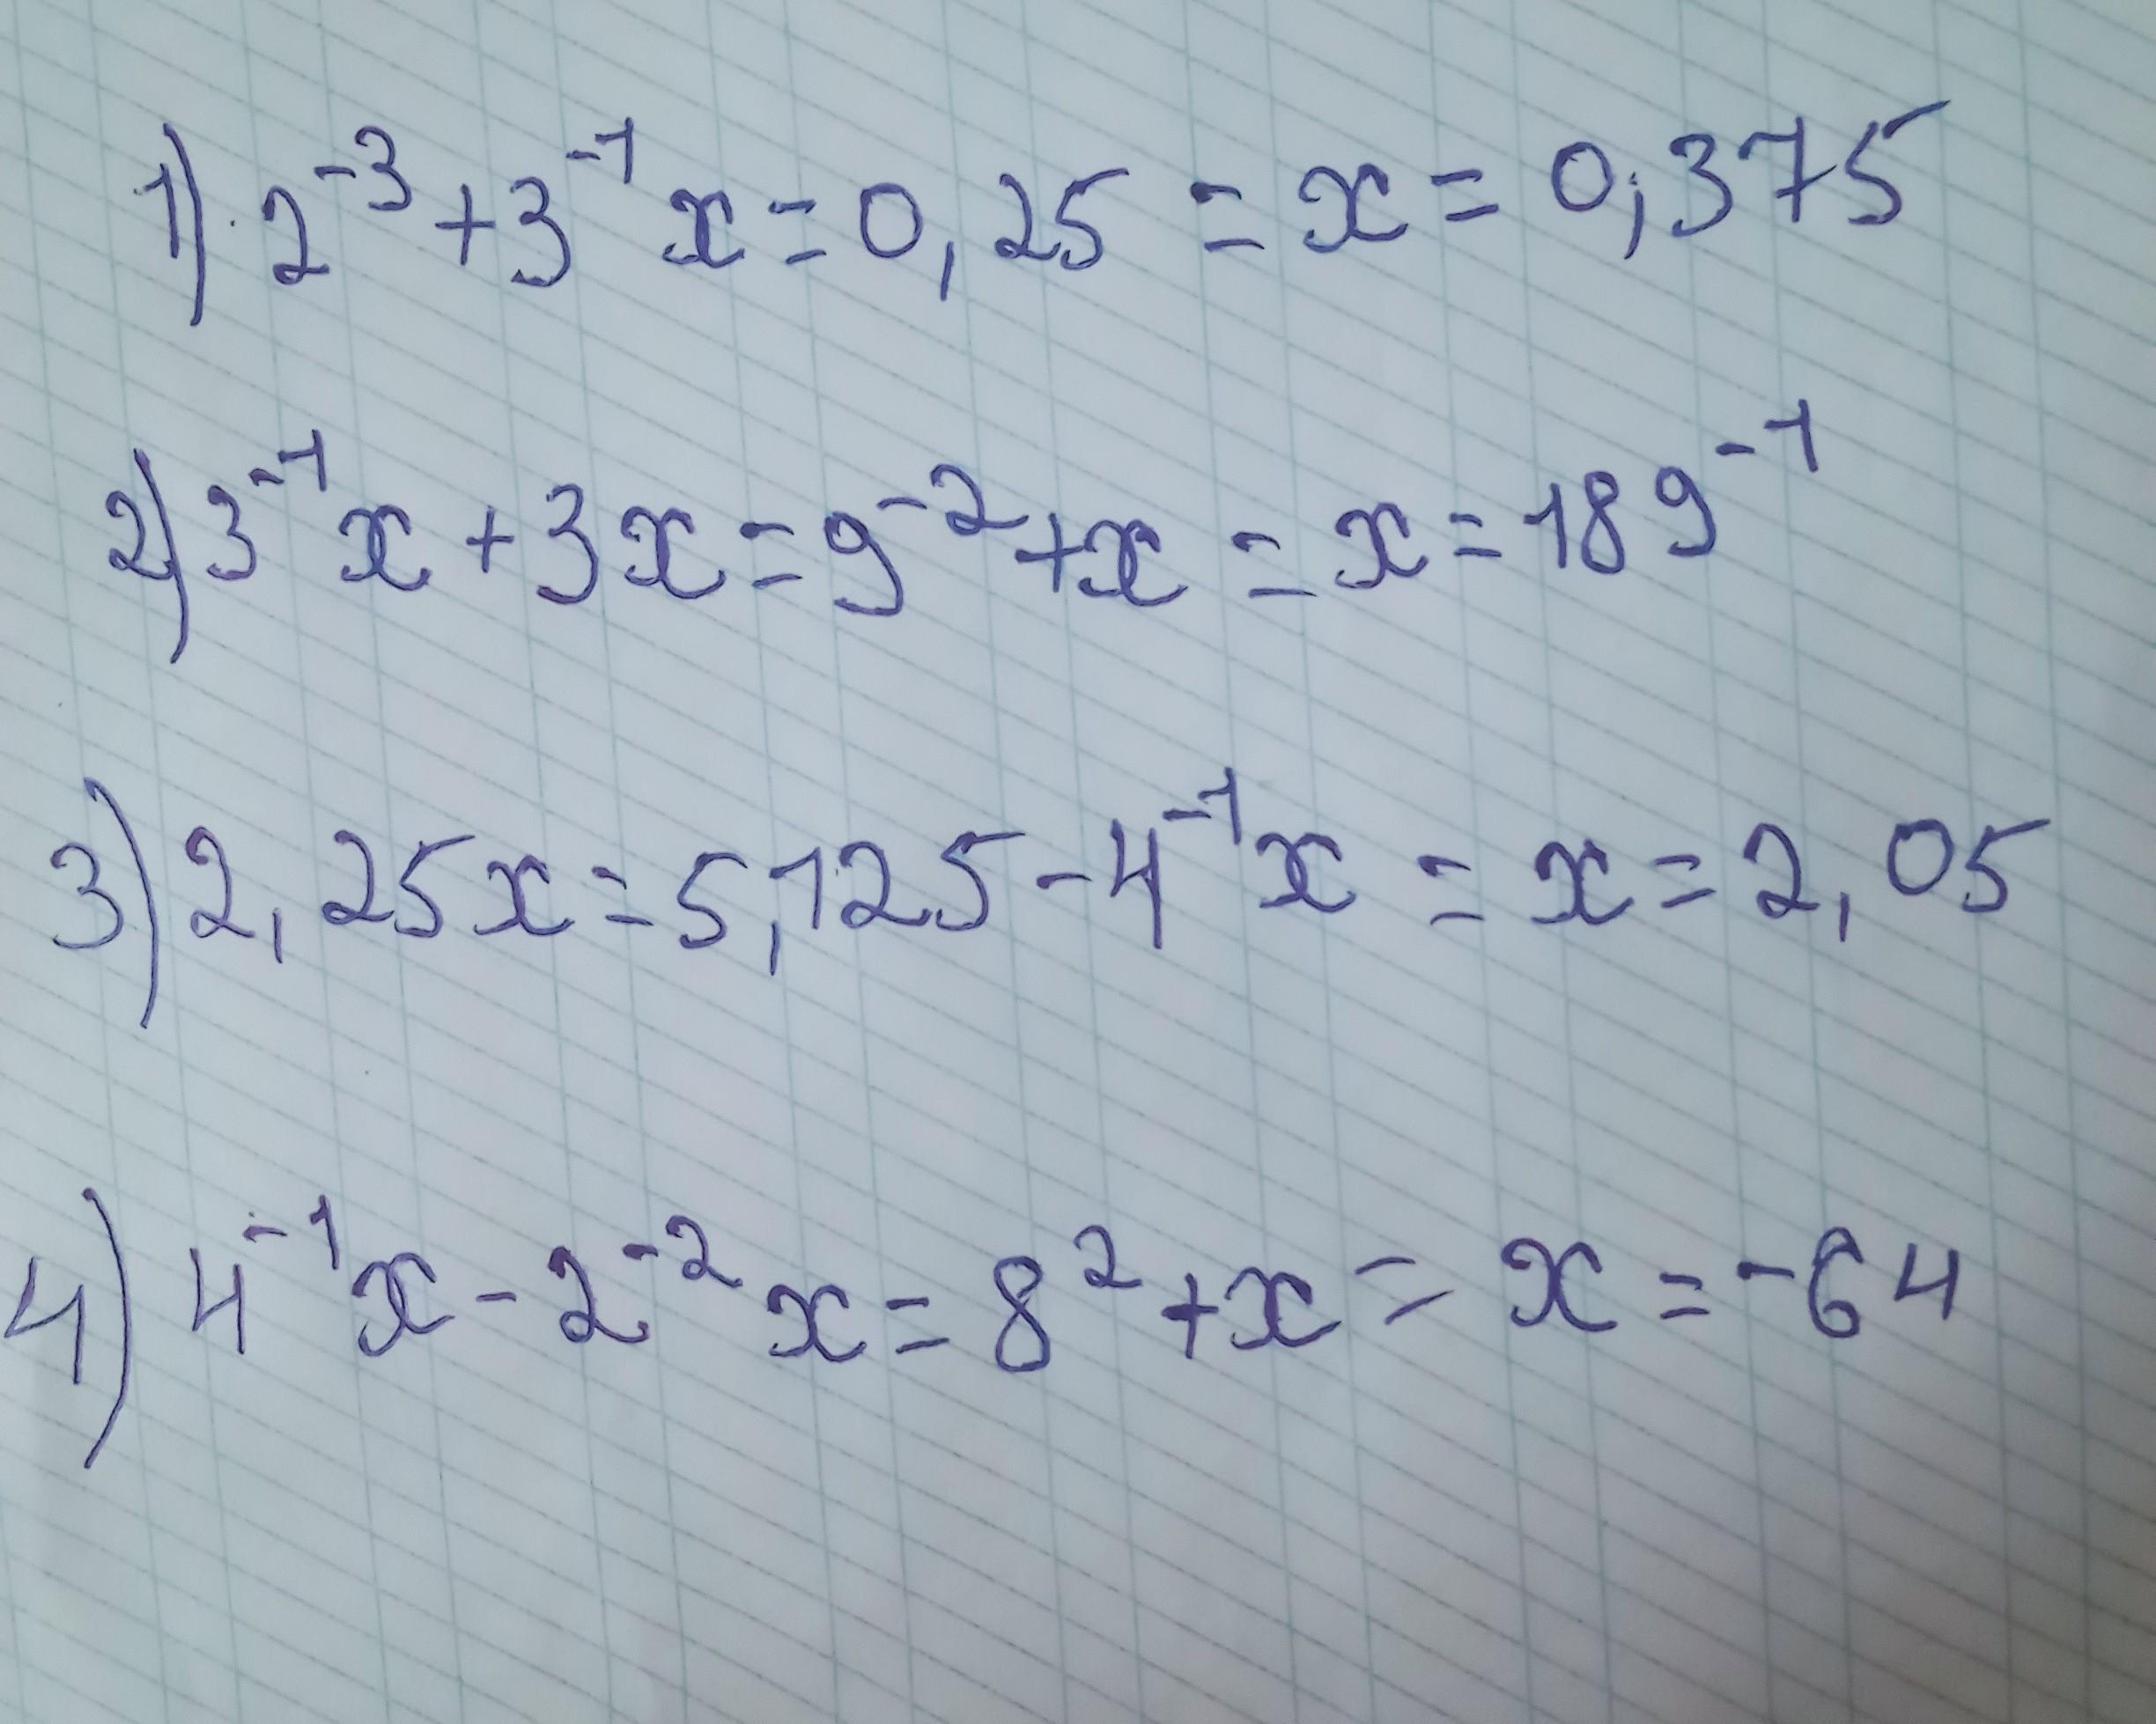 1) 2⁻³+3⁻¹x=0,25 = x=0,375
2) 3⁻¹x+3x=9⁻²+x = x=189⁻¹
3) 2,25x=5,125-4⁻¹x = x=2,05
4) 4⁻¹x-2⁻²x=8²+x = x=-64